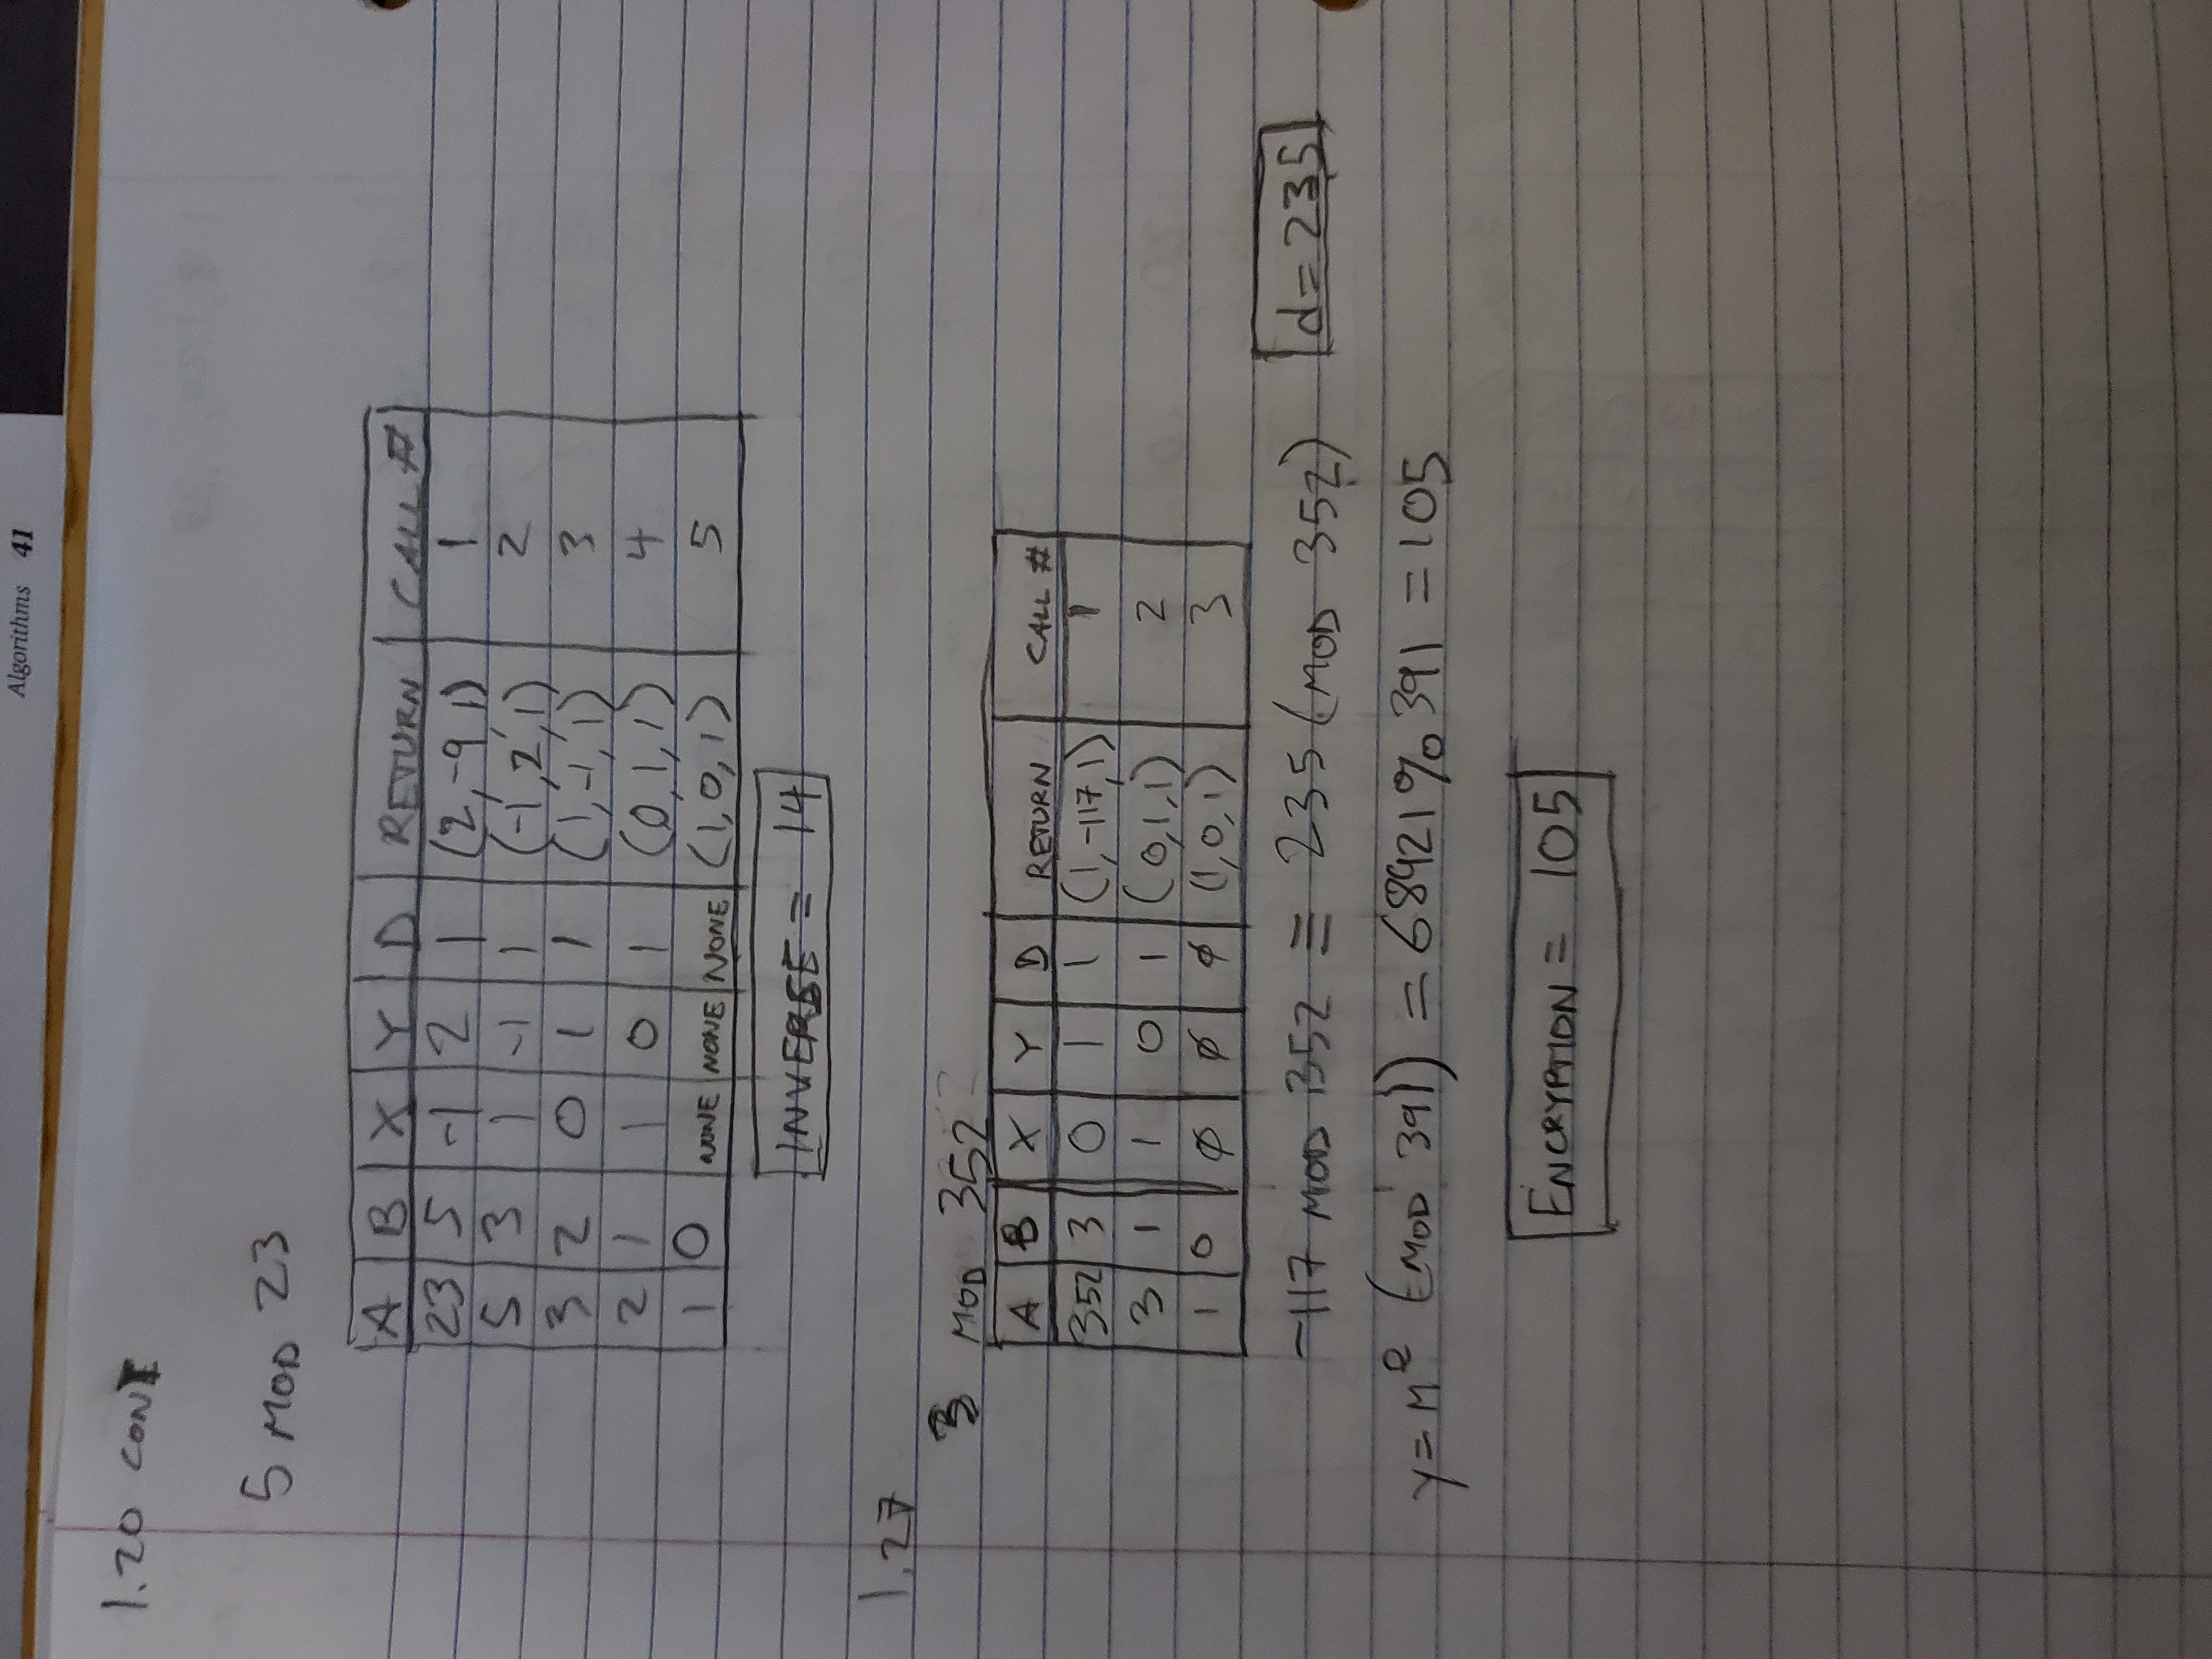 Algorithms 41
1.20 CONT
5 MOD 23
A B X Y D RETURN CALL #
23 5 -1 2 1 (2,-9,1) 1
5 3 1 -1 1 (-1,2,1) 2
3 2 0 1 1 (1,-1,1) 3
2 1 1 0 1 (0,1,1) 4
1 0 NONE NONE NONE (1,0,1) 5
INVERSE = 14
1.27
3 MOD 352
A B X Y D RETURN CALL #
352 3 0 1 1 (1,-117,1) 1
3 1 1 0 1 (0,1,1) 2
1 0 ∅ ∅ ∅ (1,0,1) 3
-117 MOD 352 ≡ 235 (MOD 352) d=235
y = M^e (MOD 391) = 68921 % 391 = 105
ENCRYPTION = 105